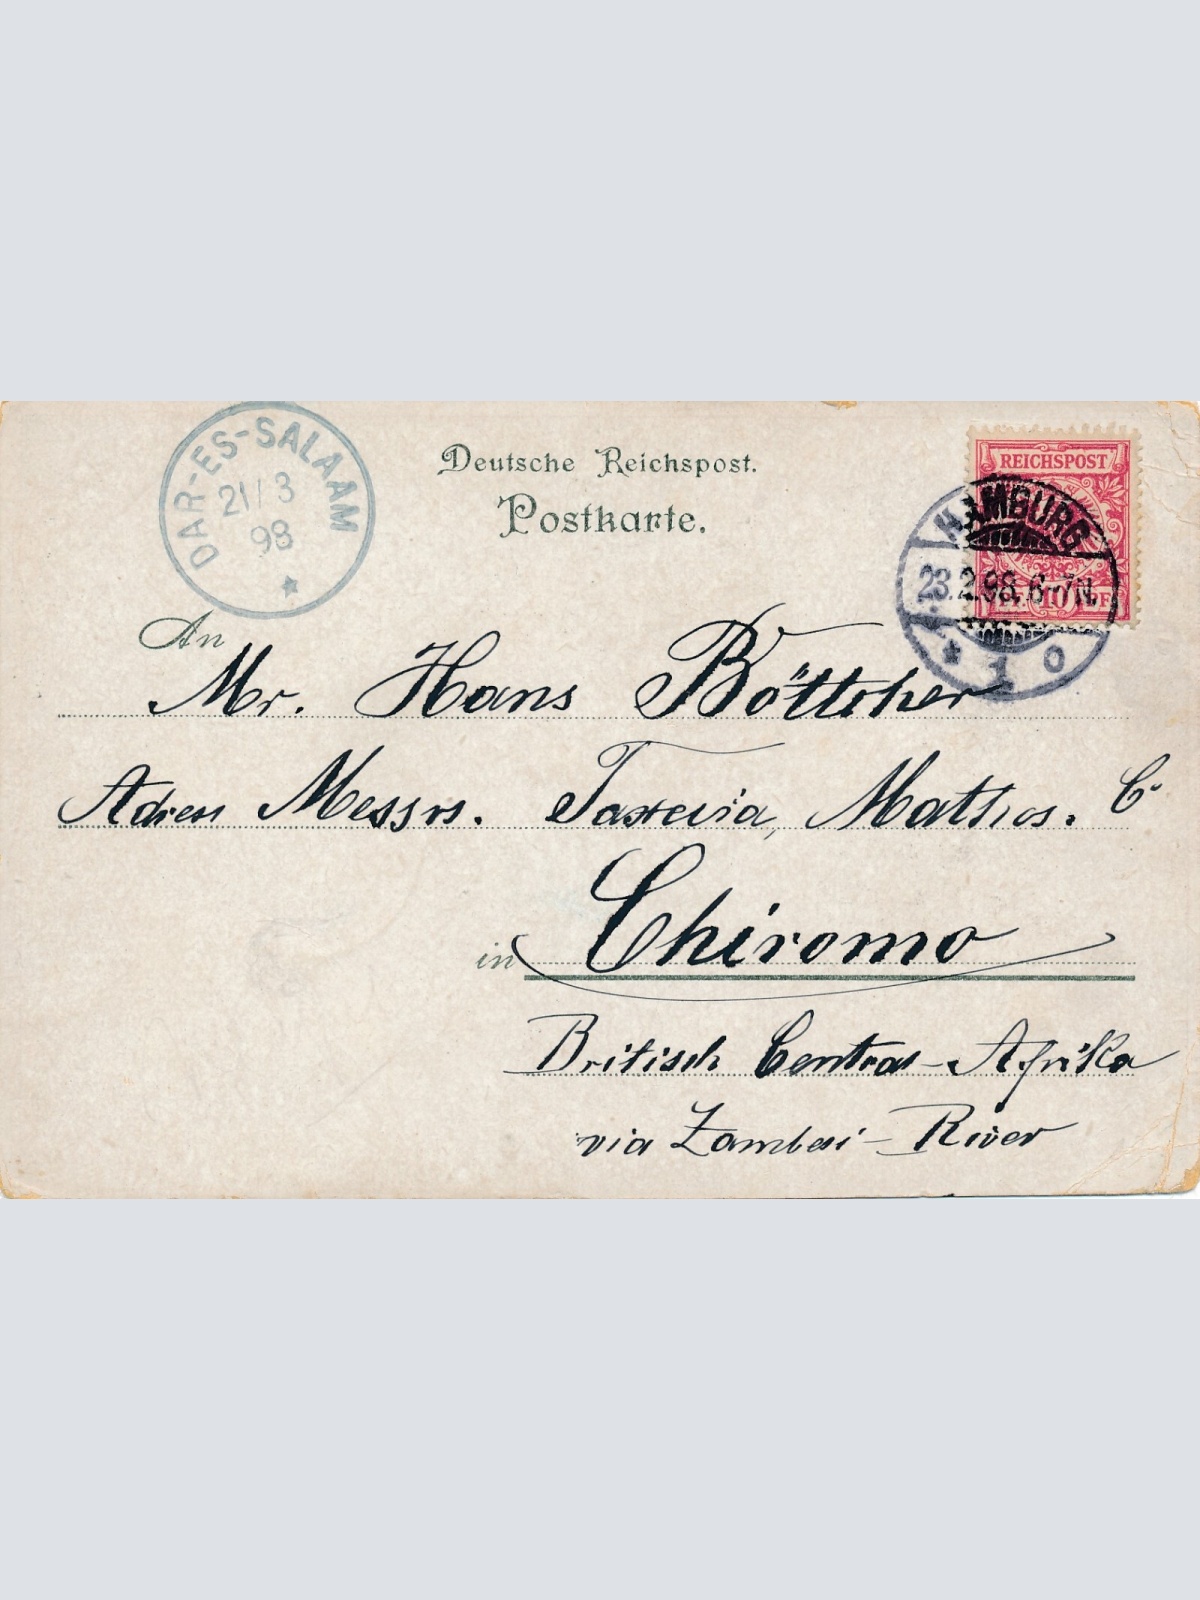 DAR-ES-SALAAM
21/3
98
Deutsche Reichspost.
Postkarte.
REICHSPOST
HAMBURG
23.2.98. 6-7N.
10
* 1 o
An
Mr. Hans Böttcher
Messrs. Mathos. C.
in Chiromo
Britisch Central-Afrika
via Zambesi-River